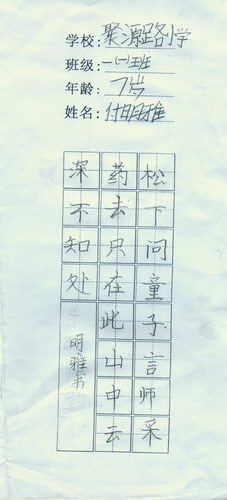 学校:聚源路小学
班级:一(一)班
年龄:7岁
姓名:付明雅
松下问童子言师采
药去只在此山中云
深不知处
明雅书